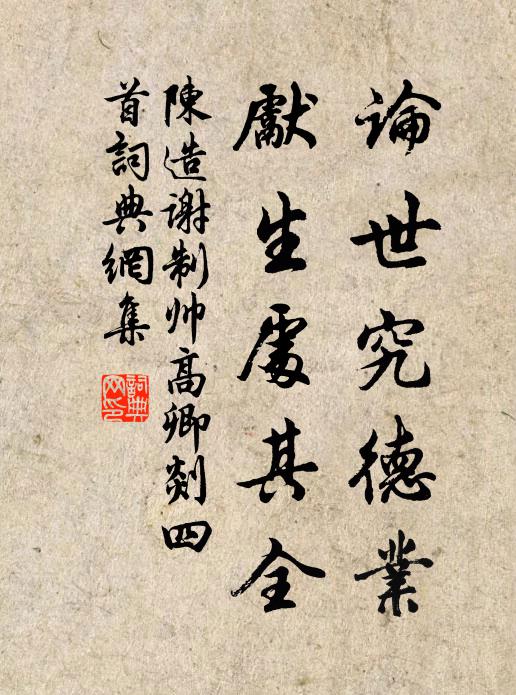 論世究德業
獻生處其全
陳造謝制帅高卿剡四
首詞典網集
詞典网印